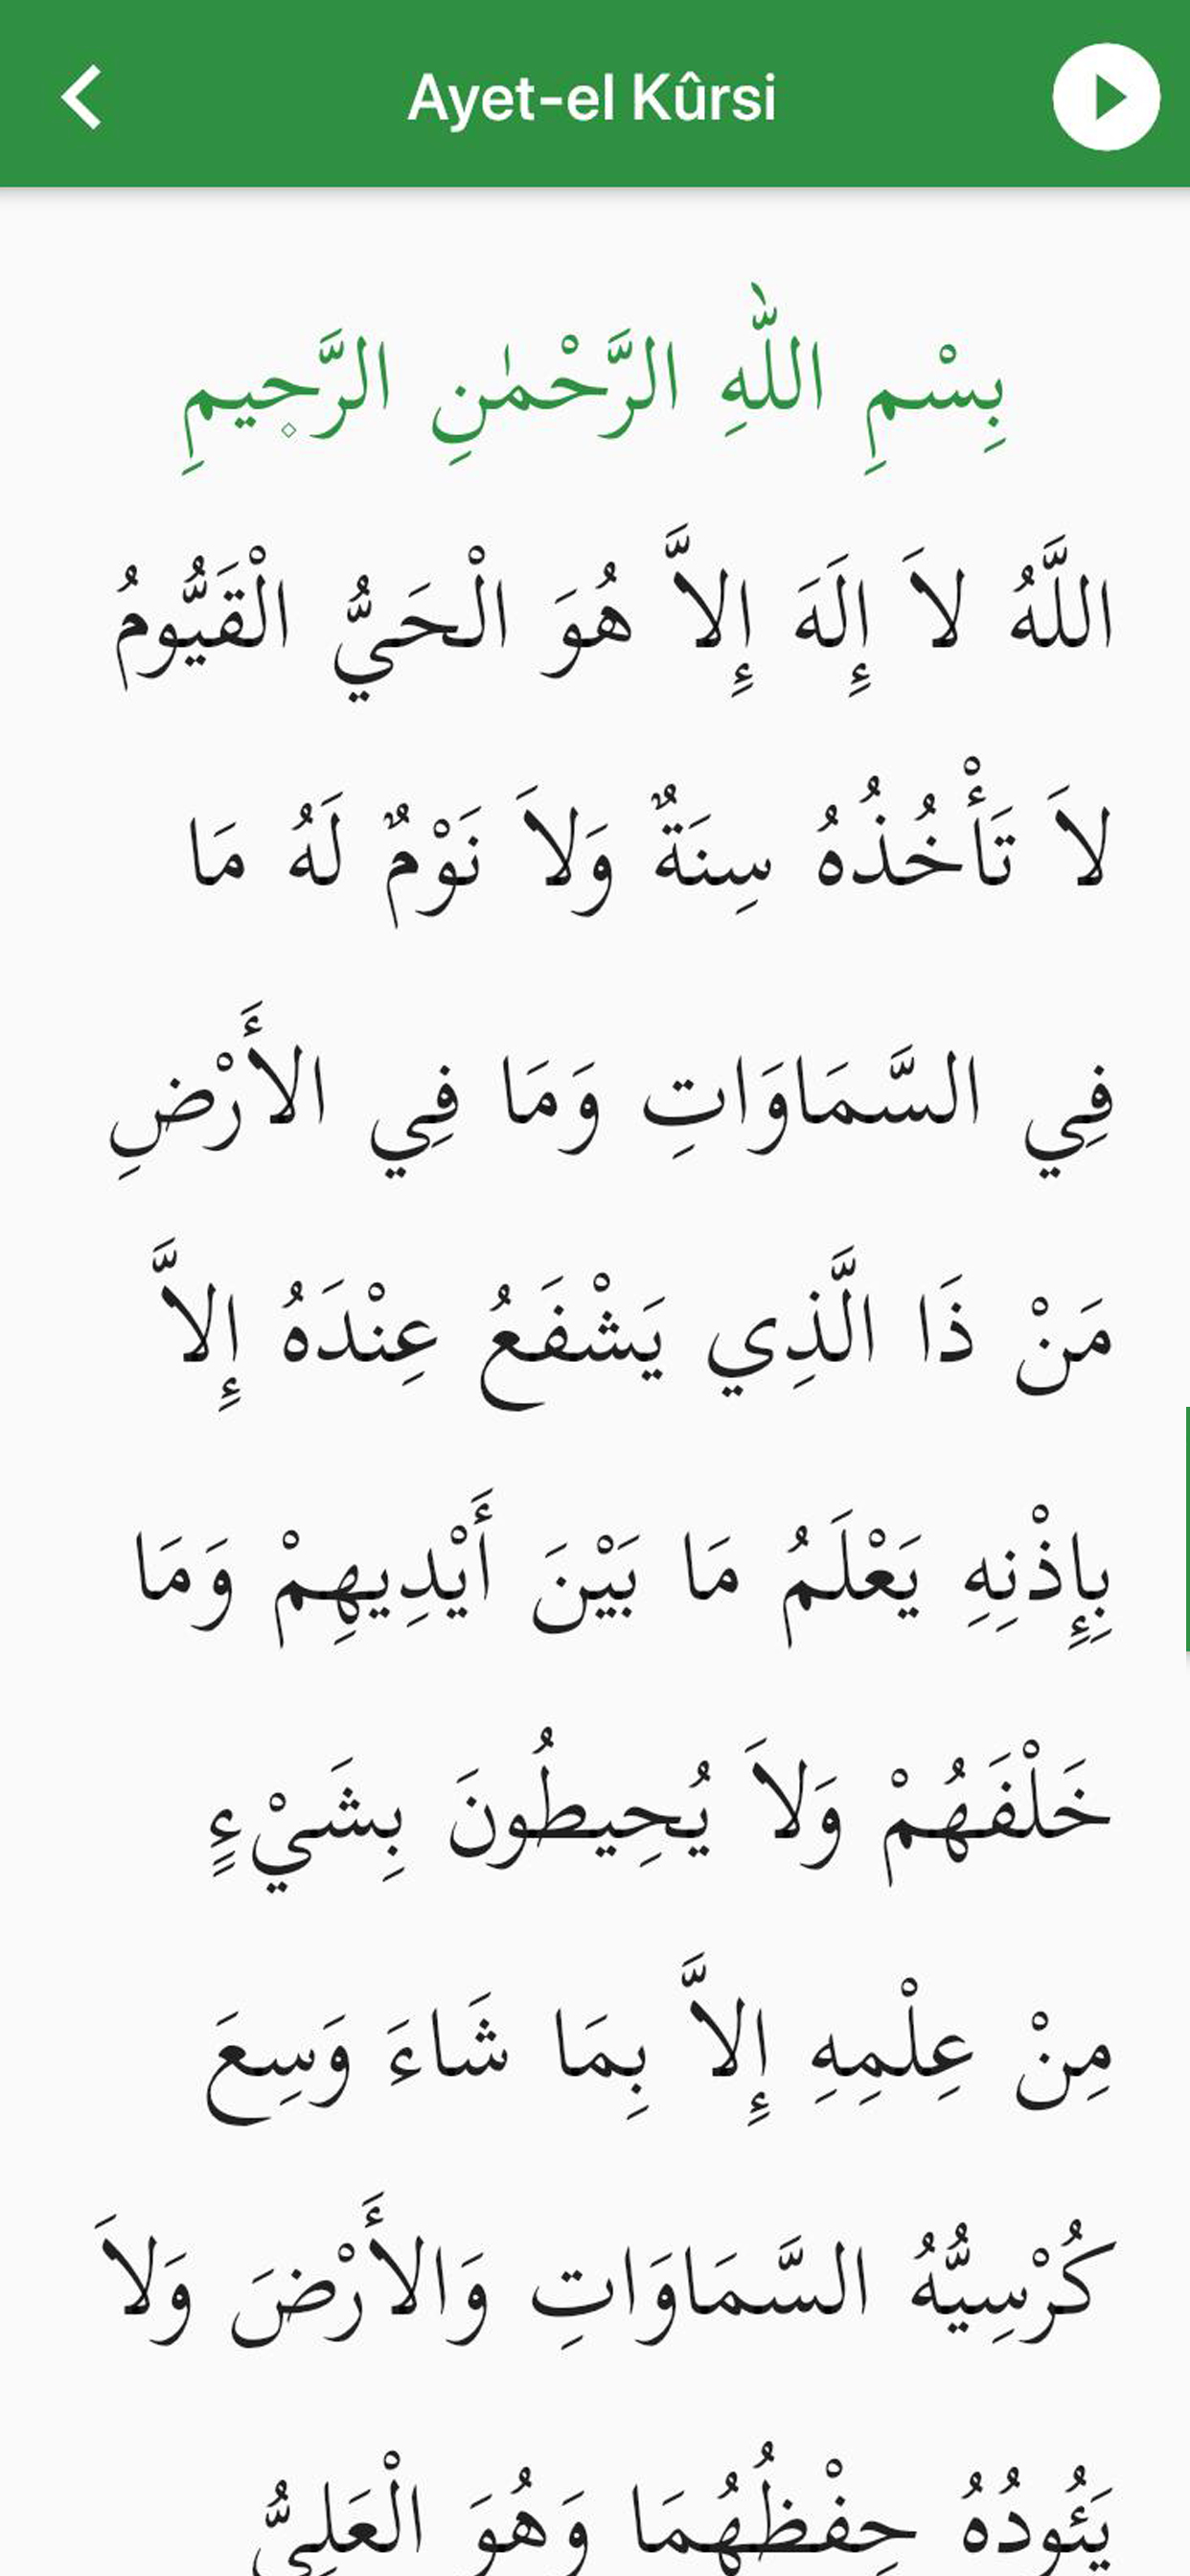 Ayet-el Kûrsi
بِسْمِ اللّٰهِ الرَّحْمٰنِ الرَّحِيمِ
اللَّهُ لاَ إِلَهَ إِلاَّ هُوَ الْحَيُّ الْقَيُّومُ
لاَ تَأْخُذُهُ سِنَةٌ وَلاَ نَوْمٌ لَهُ مَا
فِي السَّمَاوَاتِ وَمَا فِي الأَرْضِ
مَنْ ذَا الَّذِي يَشْفَعُ عِنْدَهُ إِلاَّ
بِإِذْنِهِ يَعْلَمُ مَا بَيْنَ أَيْدِيهِمْ وَمَا
خَلْفَهُمْ وَلاَ يُحِيطُونَ بِشَيْءٍ
مِنْ عِلْمِهِ إِلاَّ بِمَا شَاءَ وَسِعَ
كُرْسِيُّهُ السَّمَاوَاتِ وَالأَرْضَ وَلاَ
يَئُودُهُ حِفْظُهُمَا وَهُوَ الْعَلِيُّ